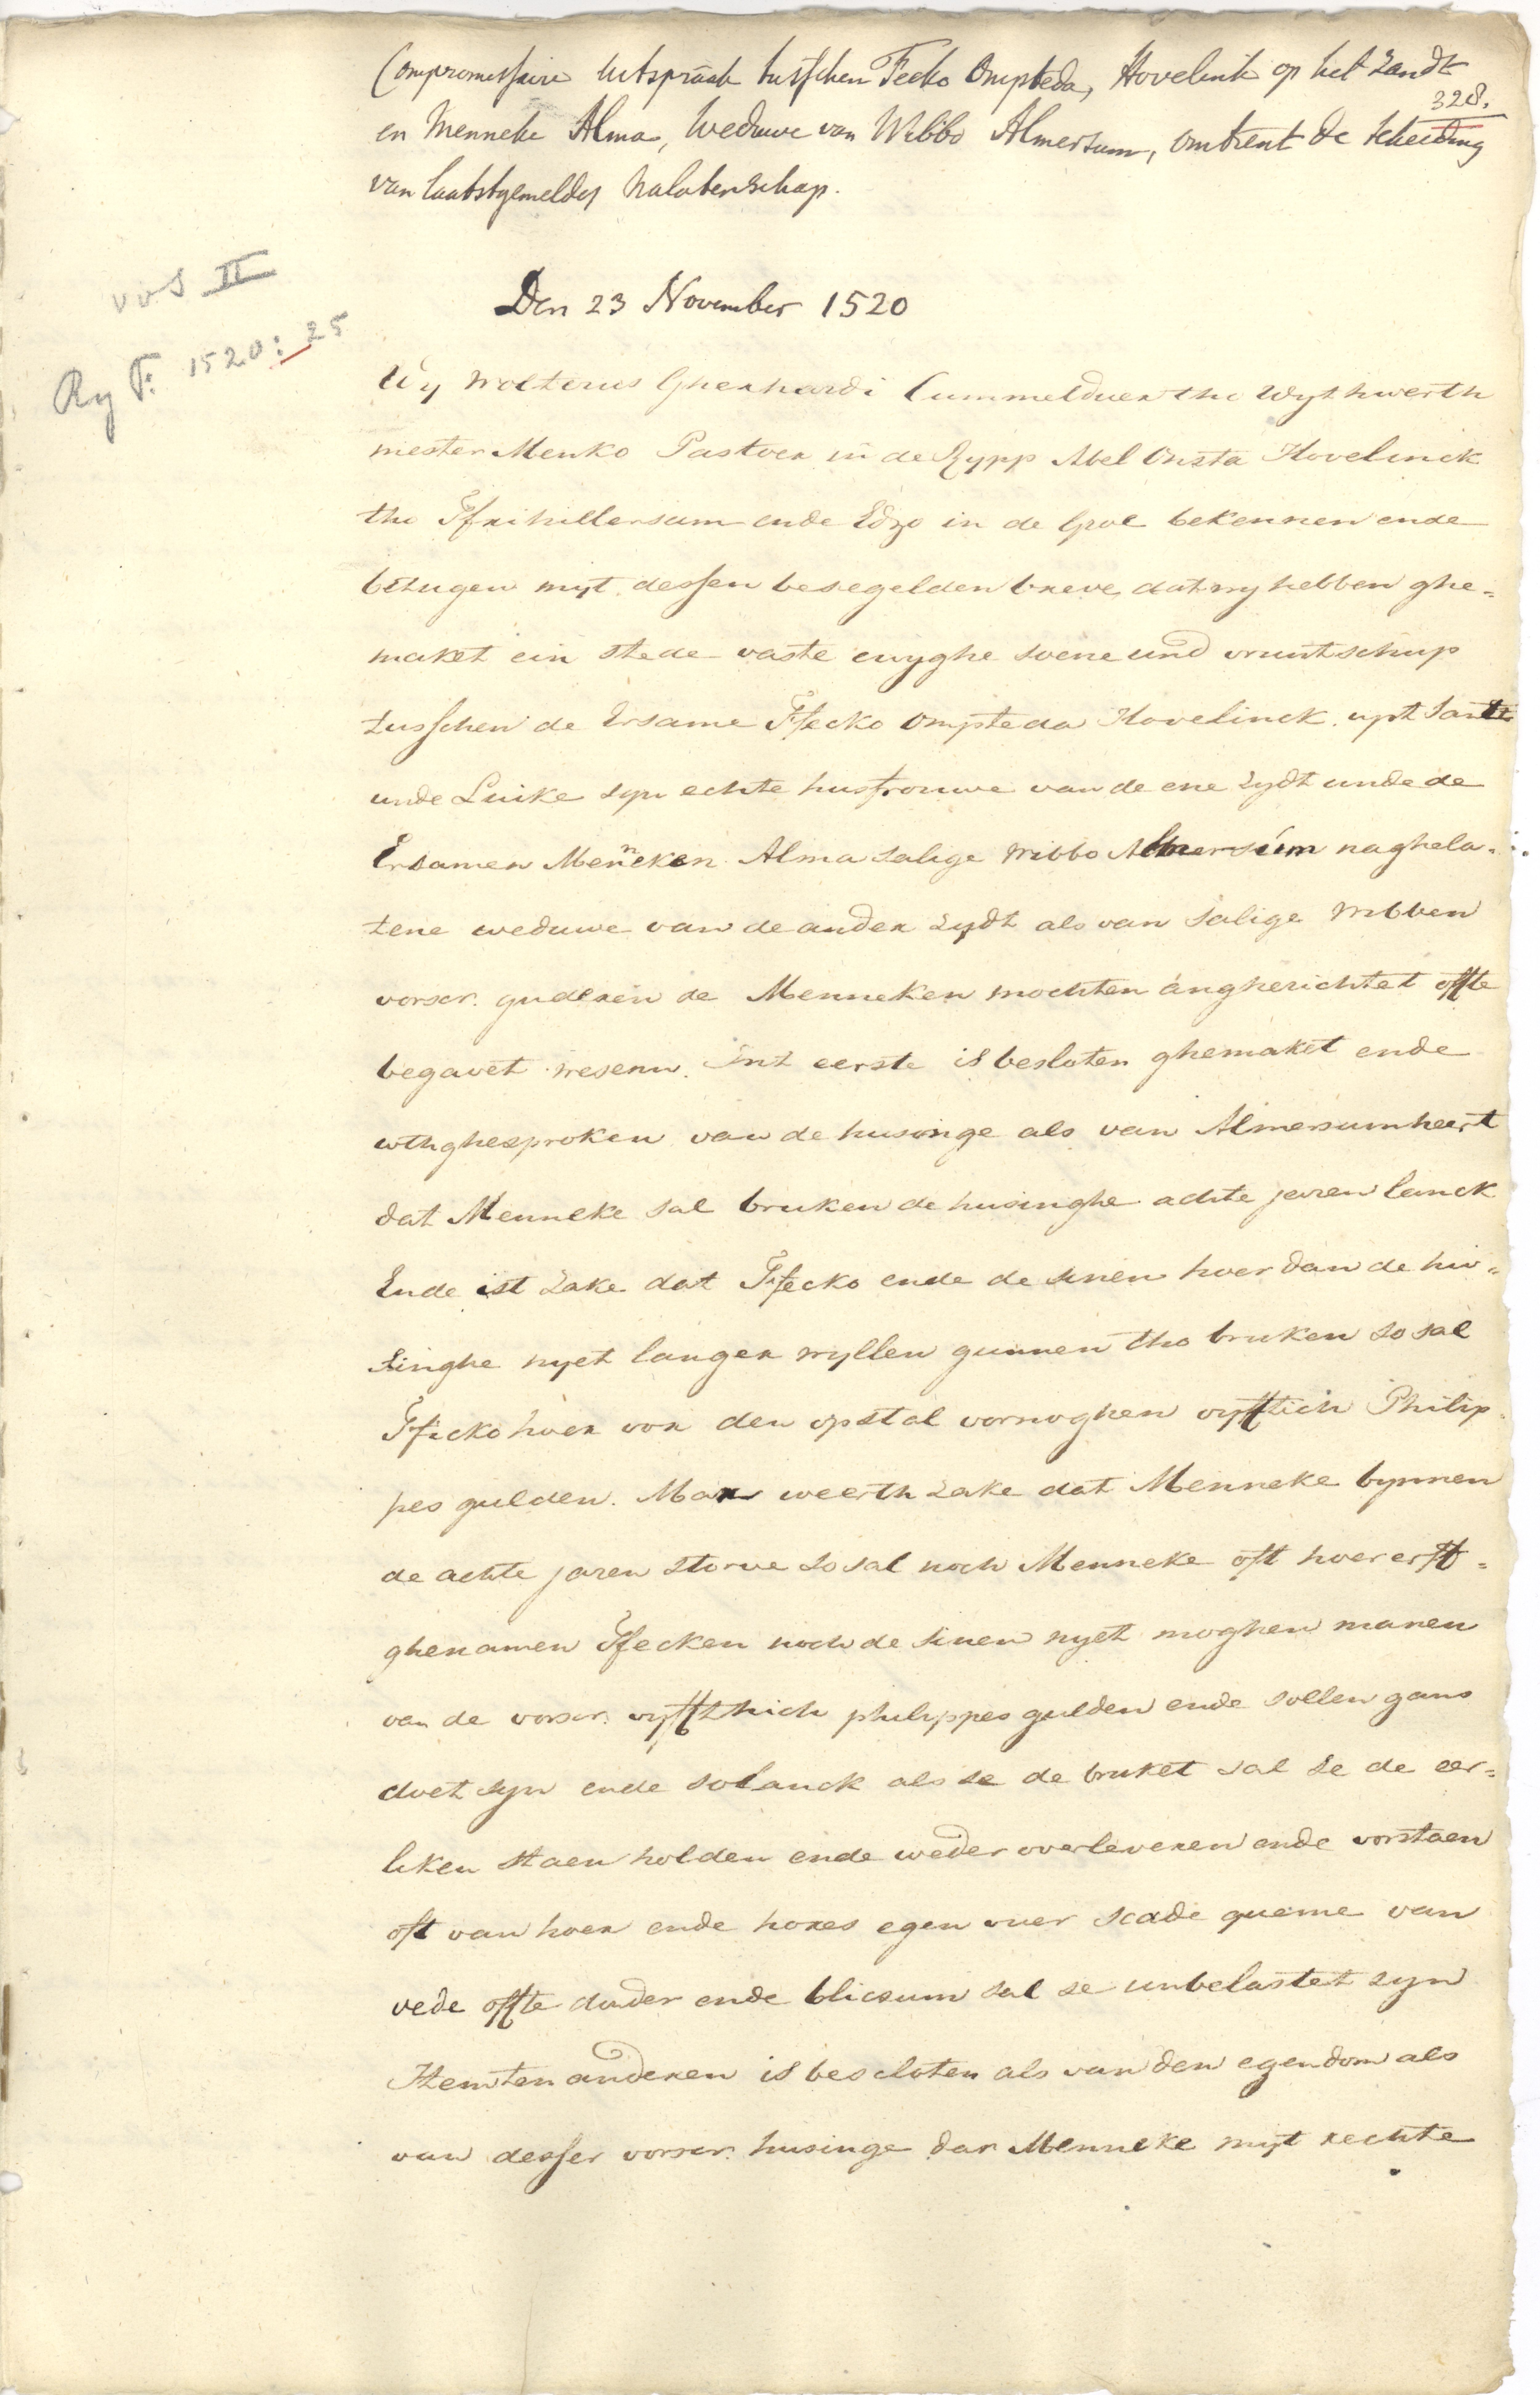 Compromissaire uitspraak tusschen Fecko Ompteda, Hovelink op het Zandt
328.
en Menneke Alma, Weduwe van Wibbo Almersum, omtrent de scheiding
van laatstgemeldes Nalatenschap.
vos II
Den 23 November 1520
Ry F: 1520: 25
Wy Wolterus Gherhardi Cummelduer tho Wythwerth
mester Menko Pastoer in de Zypp Abel Onsta Hovelinck
tho Ffrihillersum ende Edzo in de Groe bekennen ende
betugen myt dessen besegelden breve dat wy hebben ghe=
maket ein stede vaste ewyghe soene und vruntschup
tusschen de Ersame Ffecko Ompteda Hovelinck upt Sandt
unde Luike syn echte husfrouwe van de ene zydt unde de
Ersamen Menneken Alma salige Wibbo Almersum naghela=
tene weduwe van de ander zydt als van salige Wibben
vorscr. guderen de Menneken mochten angherichtet offte
begavet wesenn. Int eerste is besloten ghemaket ende
wthghesproken van de husinge als van Almersumheert
dat Menneke sal bruken de husinghe achte jaren lanck
Ende ist zake dat Ffecko ende de sinen hoer dan de hu=
singhe nyet langer wyllen gunnen tho bruken so sal
Ffecko hoer vor den opstal vornoghen vyfftich Philip=
pes gulden. Mar weerth zake dat Menneke bynnen
de achte jaren storve so sal noch Menneke oft hoer erff=
ghenamen Ffecken noch de sinen nyet moghen manen
van de vorscr. vyffthich philyppes gulden ende sollen gans
doet syn ende solanck als se de bruket sal se de eer=
liken staen holden ende weder overleveren ende vorstaen
oft van hoer ende hores egen vuer scade queme van
vede offte donder ende blicsum sal se unbelastet zyn
Item ten anderen is bescloten als van den egendom als
van desser vorscr. husinge dar Menneke myt rechte